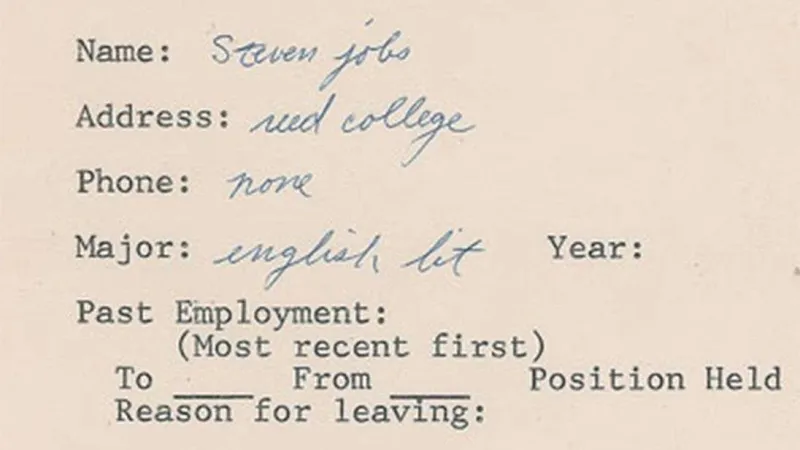 Name: Steven jobs
Address: reed college
Phone: none
Major: english lit Year:
Past Employment:
(Most recent first)
To ____ From ____ Position Held
Reason for leaving: